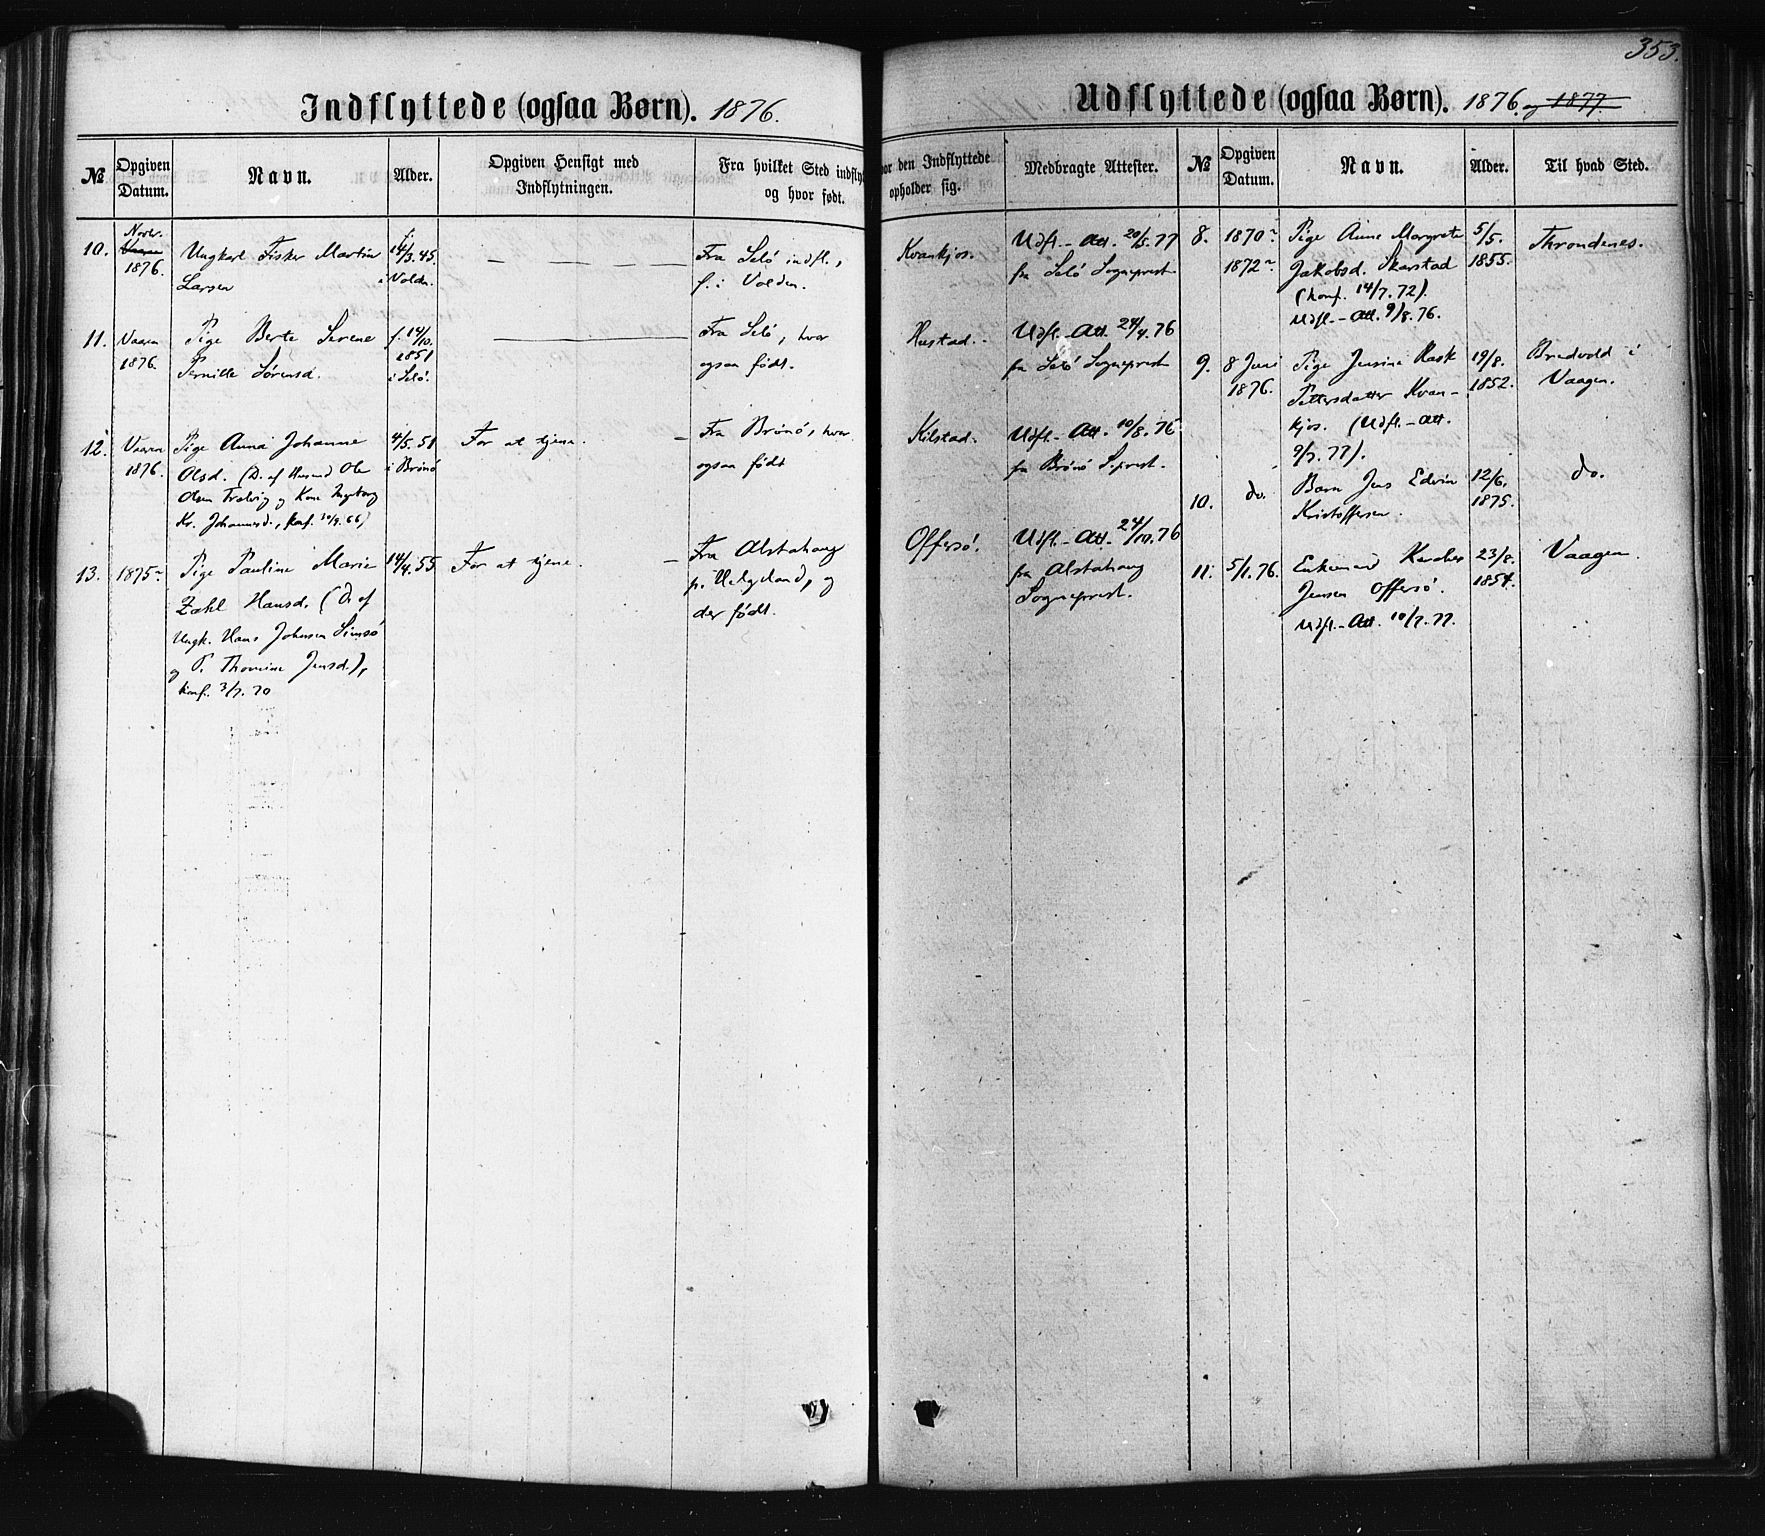 353.
Indflyttede (ogsaa Børn). 1876.
№
Opgiven Datum.
Navn.
Alder.
Opgiven Hensigt med Indflytningen.
Fra hvilket Sted indfly
og hvor født.
10.
Novbr.
1876.
Ungkarl Fisker Martin
Larsen
f.
14/3.45.
i Volden.
Fra Selö indfl.,
f. i Volden.
11.
Vaaren
1876.
Pige Berte Serene
Pernille Sörensd.
f. 14/10.
1851
i Selö.
Fra Selö, hvor
ogsaa födt.
12.
Vaaren
1876.
Pige Anna Johanne
Olsd. (D. af Husmd Ole
Olsen og Kone Ingeborg
Kr. Johannesd., konf. 30/9.66)
4/5.51
i Brönö
For at tjene.
Fra Brönö, hvor
ogsaa födt
13.
1875
Pige Pauline Marie
Zahl Hansd. (D. af
Ungk. Hans Johnsen
og P. Thomine Jensd.),
konf. 3/7.70
14/4.55
For at tjene.
Fra Alstahaug
p. Helgeland, og
der födt.
Udflyttede (ogsaa Børn). 1876. og 1877.
or den Indflyttede
opholder sig.
Medbragte Attester.
№
Opgiven Datum.
Navn.
Alder.
Til hvad Sted.
Kvankjos.
Udfl.-Att. 20/5.77
fra Selö Sogneprest
Hustad.
Udfl.-Att. 24/4.76
fra Selö Sogneprest
Kilstad.
Udfl.-Att. 10/8.76
fra Brönö S.prest.
Offersö.
Udfl.-Att. 24/10.76
fra Alstahaug
Sogneprest.
8.
1870
1872
Pige Anne Margrete
Jakobsd. Skarstad
(konf. 14/7.72).
Udfl.-Att. 9/8.76.
5/5.
1855.
Throndenes.
9.
8 Juni
1876.
Pige Jensine Rask
Pettersdatter Kvan-
kjos. (Udfl.-Att.
9/7.77).
19/8.
1852.
Bredvold i
Vaagen.
10.
do.
Barn Jens Edvin
Kristoffersen.
12/6.
1875.
do.
11.
5/1.76.
Enkemand
Jensen Offersö.
Udfl.-Att. 10/7.77.
23/8.
1854.
Vaagen.